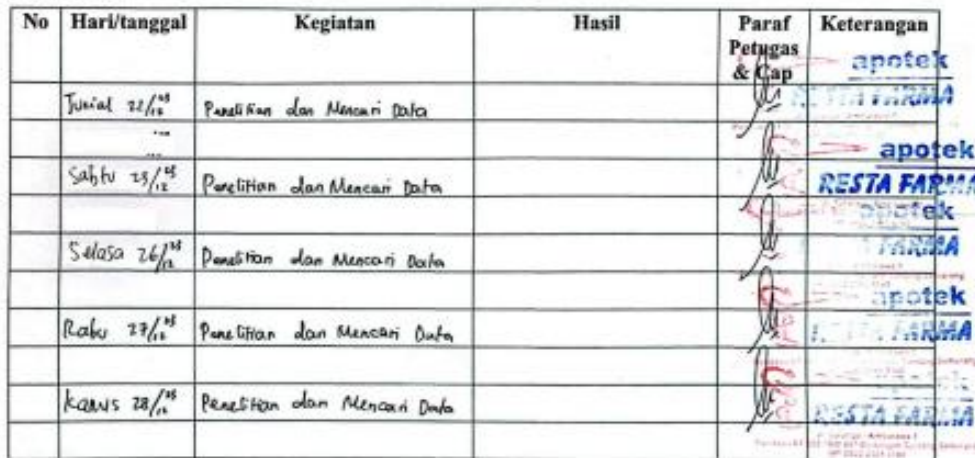 No Hari/tanggal Kegiatan Hasil Paraf Petugas & Cap Keterangan
apotek
Jumat 22/12 23 Penelitian dan Mencari Data
RESTA FARMA
...
...
apotek
Sabtu 23/12 23 Penelitian dan Mencari Data
RESTA FARMA
apotek
Selasa 26/12 23 Penelitian dan Mencari Data
FARMA
apotek
Rabu 27/12 23 Penelitian dan Mencari Data
FARMA
Kamis 28/12 23 Penelitian dan Mencari Data
RESTA FARMA